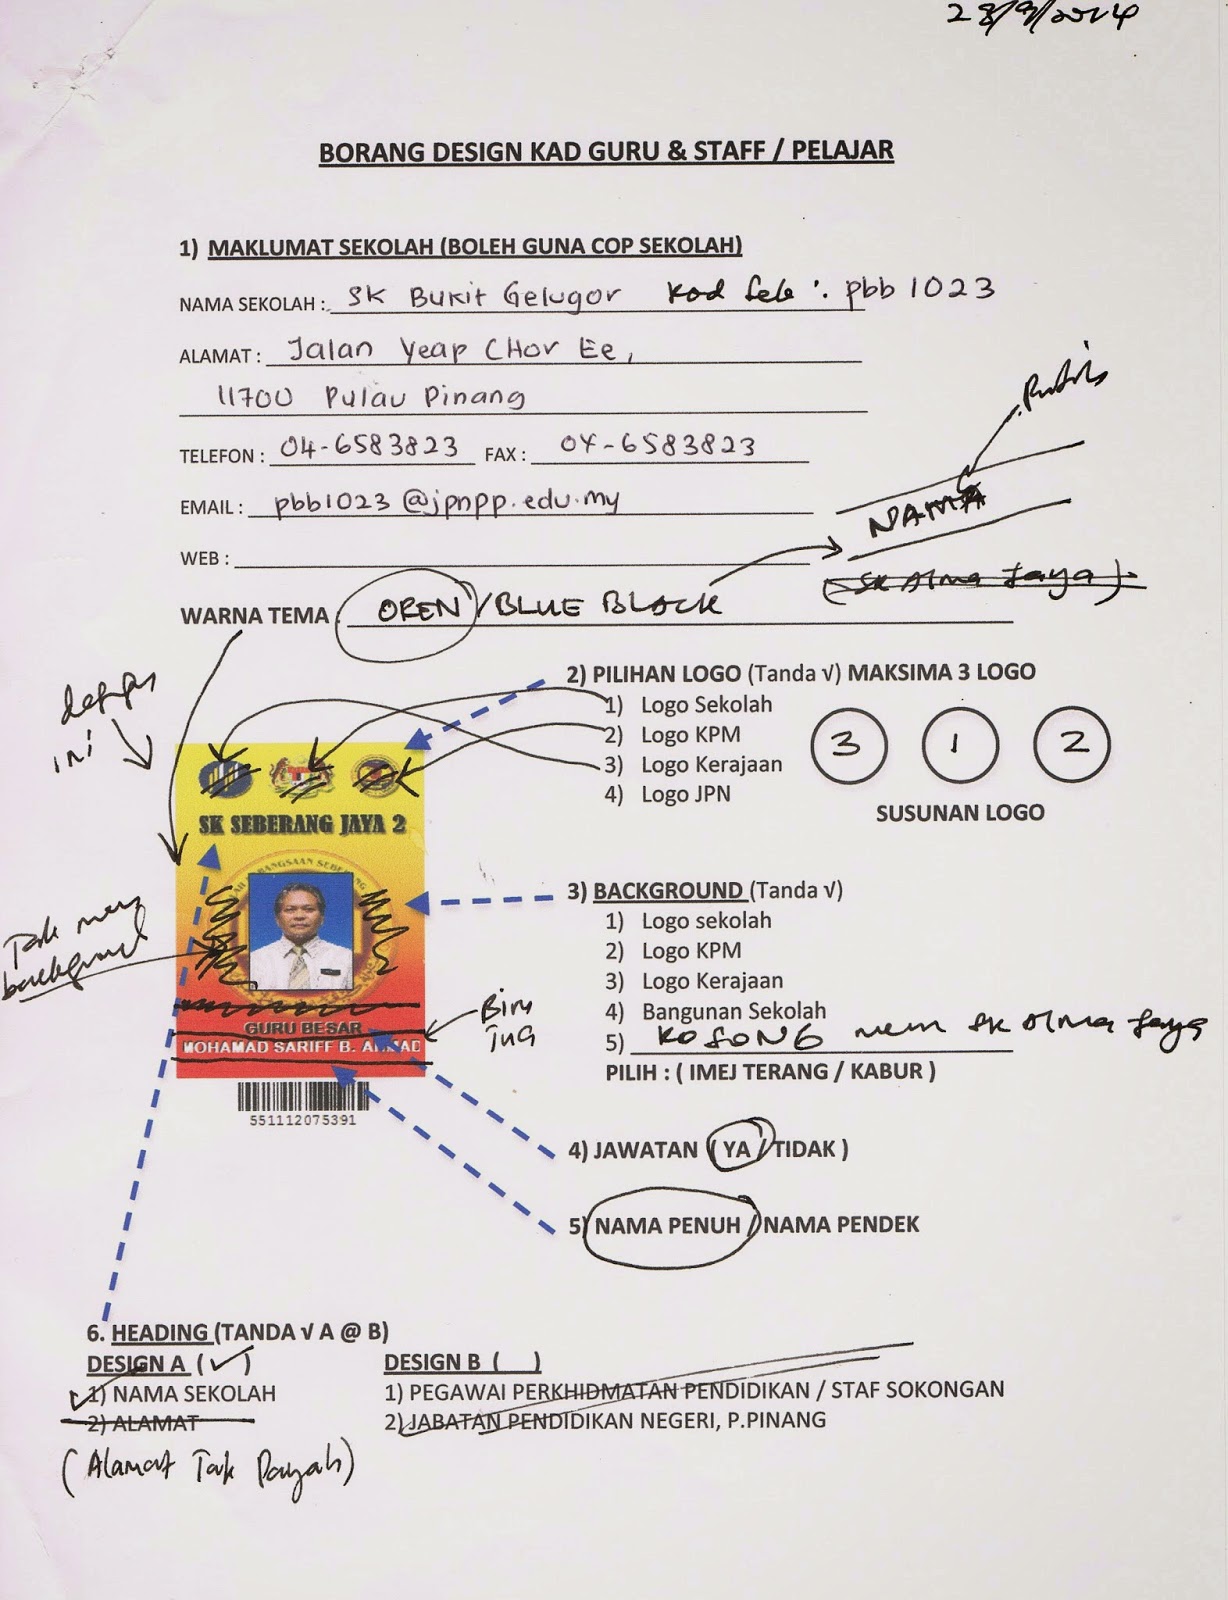 28/9/2014
BORANG DESIGN KAD GURU & STAFF / PELAJAR
1) MAKLUMAT SEKOLAH (BOLEH GUNA COP SEKOLAH)
NAMA SEKOLAH : SK Bukit Gelugor Kod Sek : pbb 1023
ALAMAT : Jalan Yeap CHor Ee,
11700 Pulau Pinang
TELEFON : 04-6583823 FAX : 04-6583823
EMAIL : pbb1023@jpnpp.edu.my
NAMA
WEB :
(SK Alma Jaya)
WARNA TEMA : OREN / BLUE BLACK
2) PILIHAN LOGO (Tanda √) MAKSIMA 3 LOGO
1) Logo Sekolah
2) Logo KPM
3) Logo Kerajaan
4) Logo JPN
3 1 2
SUSUNAN LOGO
ini
SK SEBERANG JAYA 2
3) BACKGROUND (Tanda √)
1) Logo sekolah
2) Logo KPM
3) Logo Kerajaan
4) Bangunan Sekolah
5) KOSONG mcm SK Alma Jaya
PILIH : ( IMEJ TERANG / KABUR )
background
Biru
Tua
GURU BESAR
MOHAMAD SARIFF B. AHMAD
551112075391
4) JAWATAN ( YA / TIDAK )
5) NAMA PENUH / NAMA PENDEK
6. HEADING (TANDA √ A @ B)
DESIGN A ( ✓ )
1) NAMA SEKOLAH
2) ALAMAT
(Alamat Tak Payah)
DESIGN B ( )
1) PEGAWAI PERKHIDMATAN PENDIDIKAN / STAF SOKONGAN
2) JABATAN PENDIDIKAN NEGERI, P.PINANG